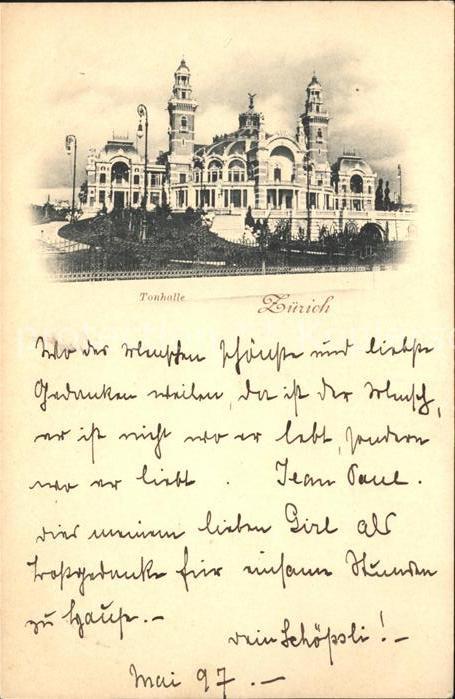 Tonhalle
Zürich
Wo des Menschen schönste und liebste
Gedanken weilen, da ist der Mensch,
er ist nicht wo er lebt, sondern
wo er liebt. Jean Paul.
dies meinem lieben Girl als
Trostgedanke für einsame Stunden
zu Hause.-
dein Schöpsli!-
Mai 97.-